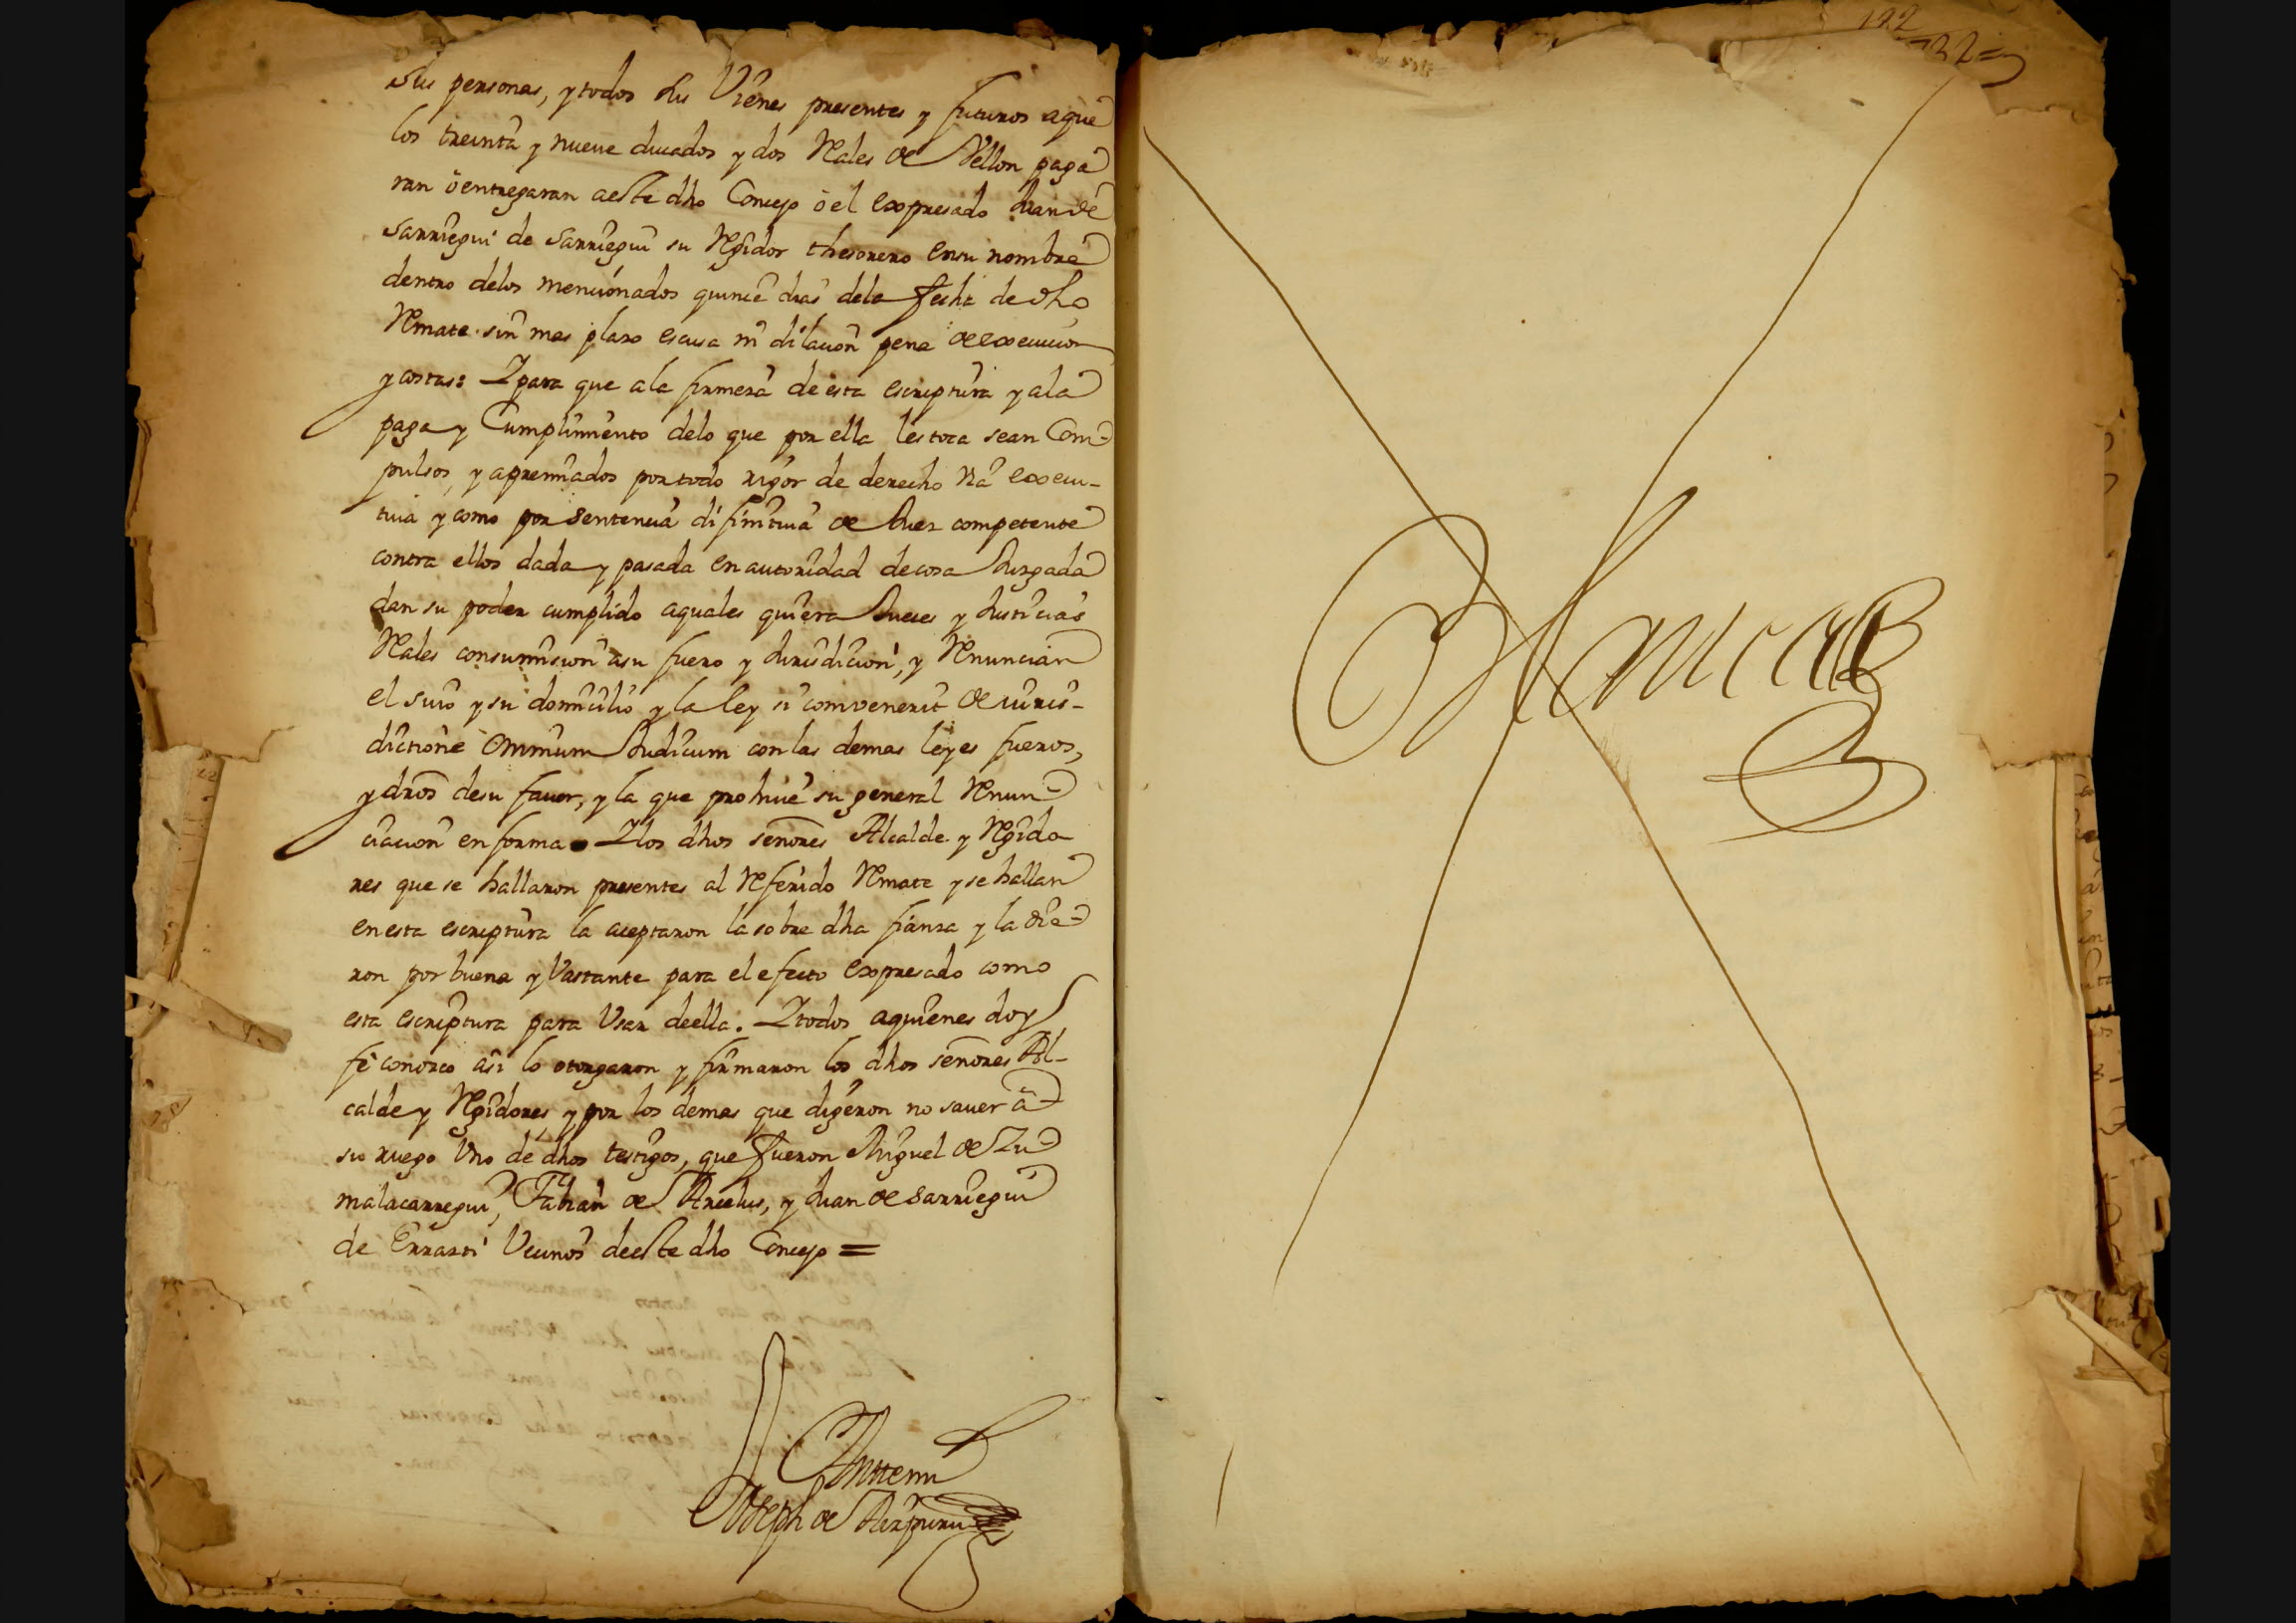 Sus personas, y todos sus Vienes presentes y futuros aque
los treinta y nueve ducados y dos Rales de Vellon paga
ran ö entregaran aeste dho Concejo ö el expresado Juan de
Sarriegui de Sarriegui su Regidor thesorero en su nombre
dentro delos mencionados quince dias dela fecha de dho
Remate sin mas plazo escusa ni dilacion pena de execucion
y costas: Y para que a la firmeza de esta escriptura y ala
paga y Cumplimiento delo que por ella les toca sean Com-
pulsos, y apremiados por todo rigor de derecho Via execu-
tiva y como por sentencia difinitiva de Juez competente
contra ellos dada y pasada en autoridad de cosa Juzgada
dan su poder cumplido aquales quiera Jueces y Justicias
Rales con sumision asu fuero y Jurisdicion, y Renuncian
el suio y su domicilio y la ley si convenerit de iuris-
dictione Omnium Judicum con las demas leyes fueros,
y dros desu favor, y la que prohive su general Renun-
ciacion en forma. Y los dhos señores Alcalde y Regido
res que se hallaron presentes al Referido Remate y se hallan
en esta escriptura la aceptaron la sobre dha fianza y la die-
ron por buena y Vastante para el efecto expresado como
esta escriptura para Usar de ella. Y todos aquienes doy
fe conozco asi lo otorgaron y firmaron los dhos señores Al-
calde y Regidores, y por los demas que digeron no saver ä
su ruego Uno de dhos testigos, que fueron Miguel de Zu
malacarregui, Fabian de Arcelus, y Juan de Sarriegui
de Errazti Vecinos de este dho Concejo =
Antemi
Joseph de Aizpuru
122